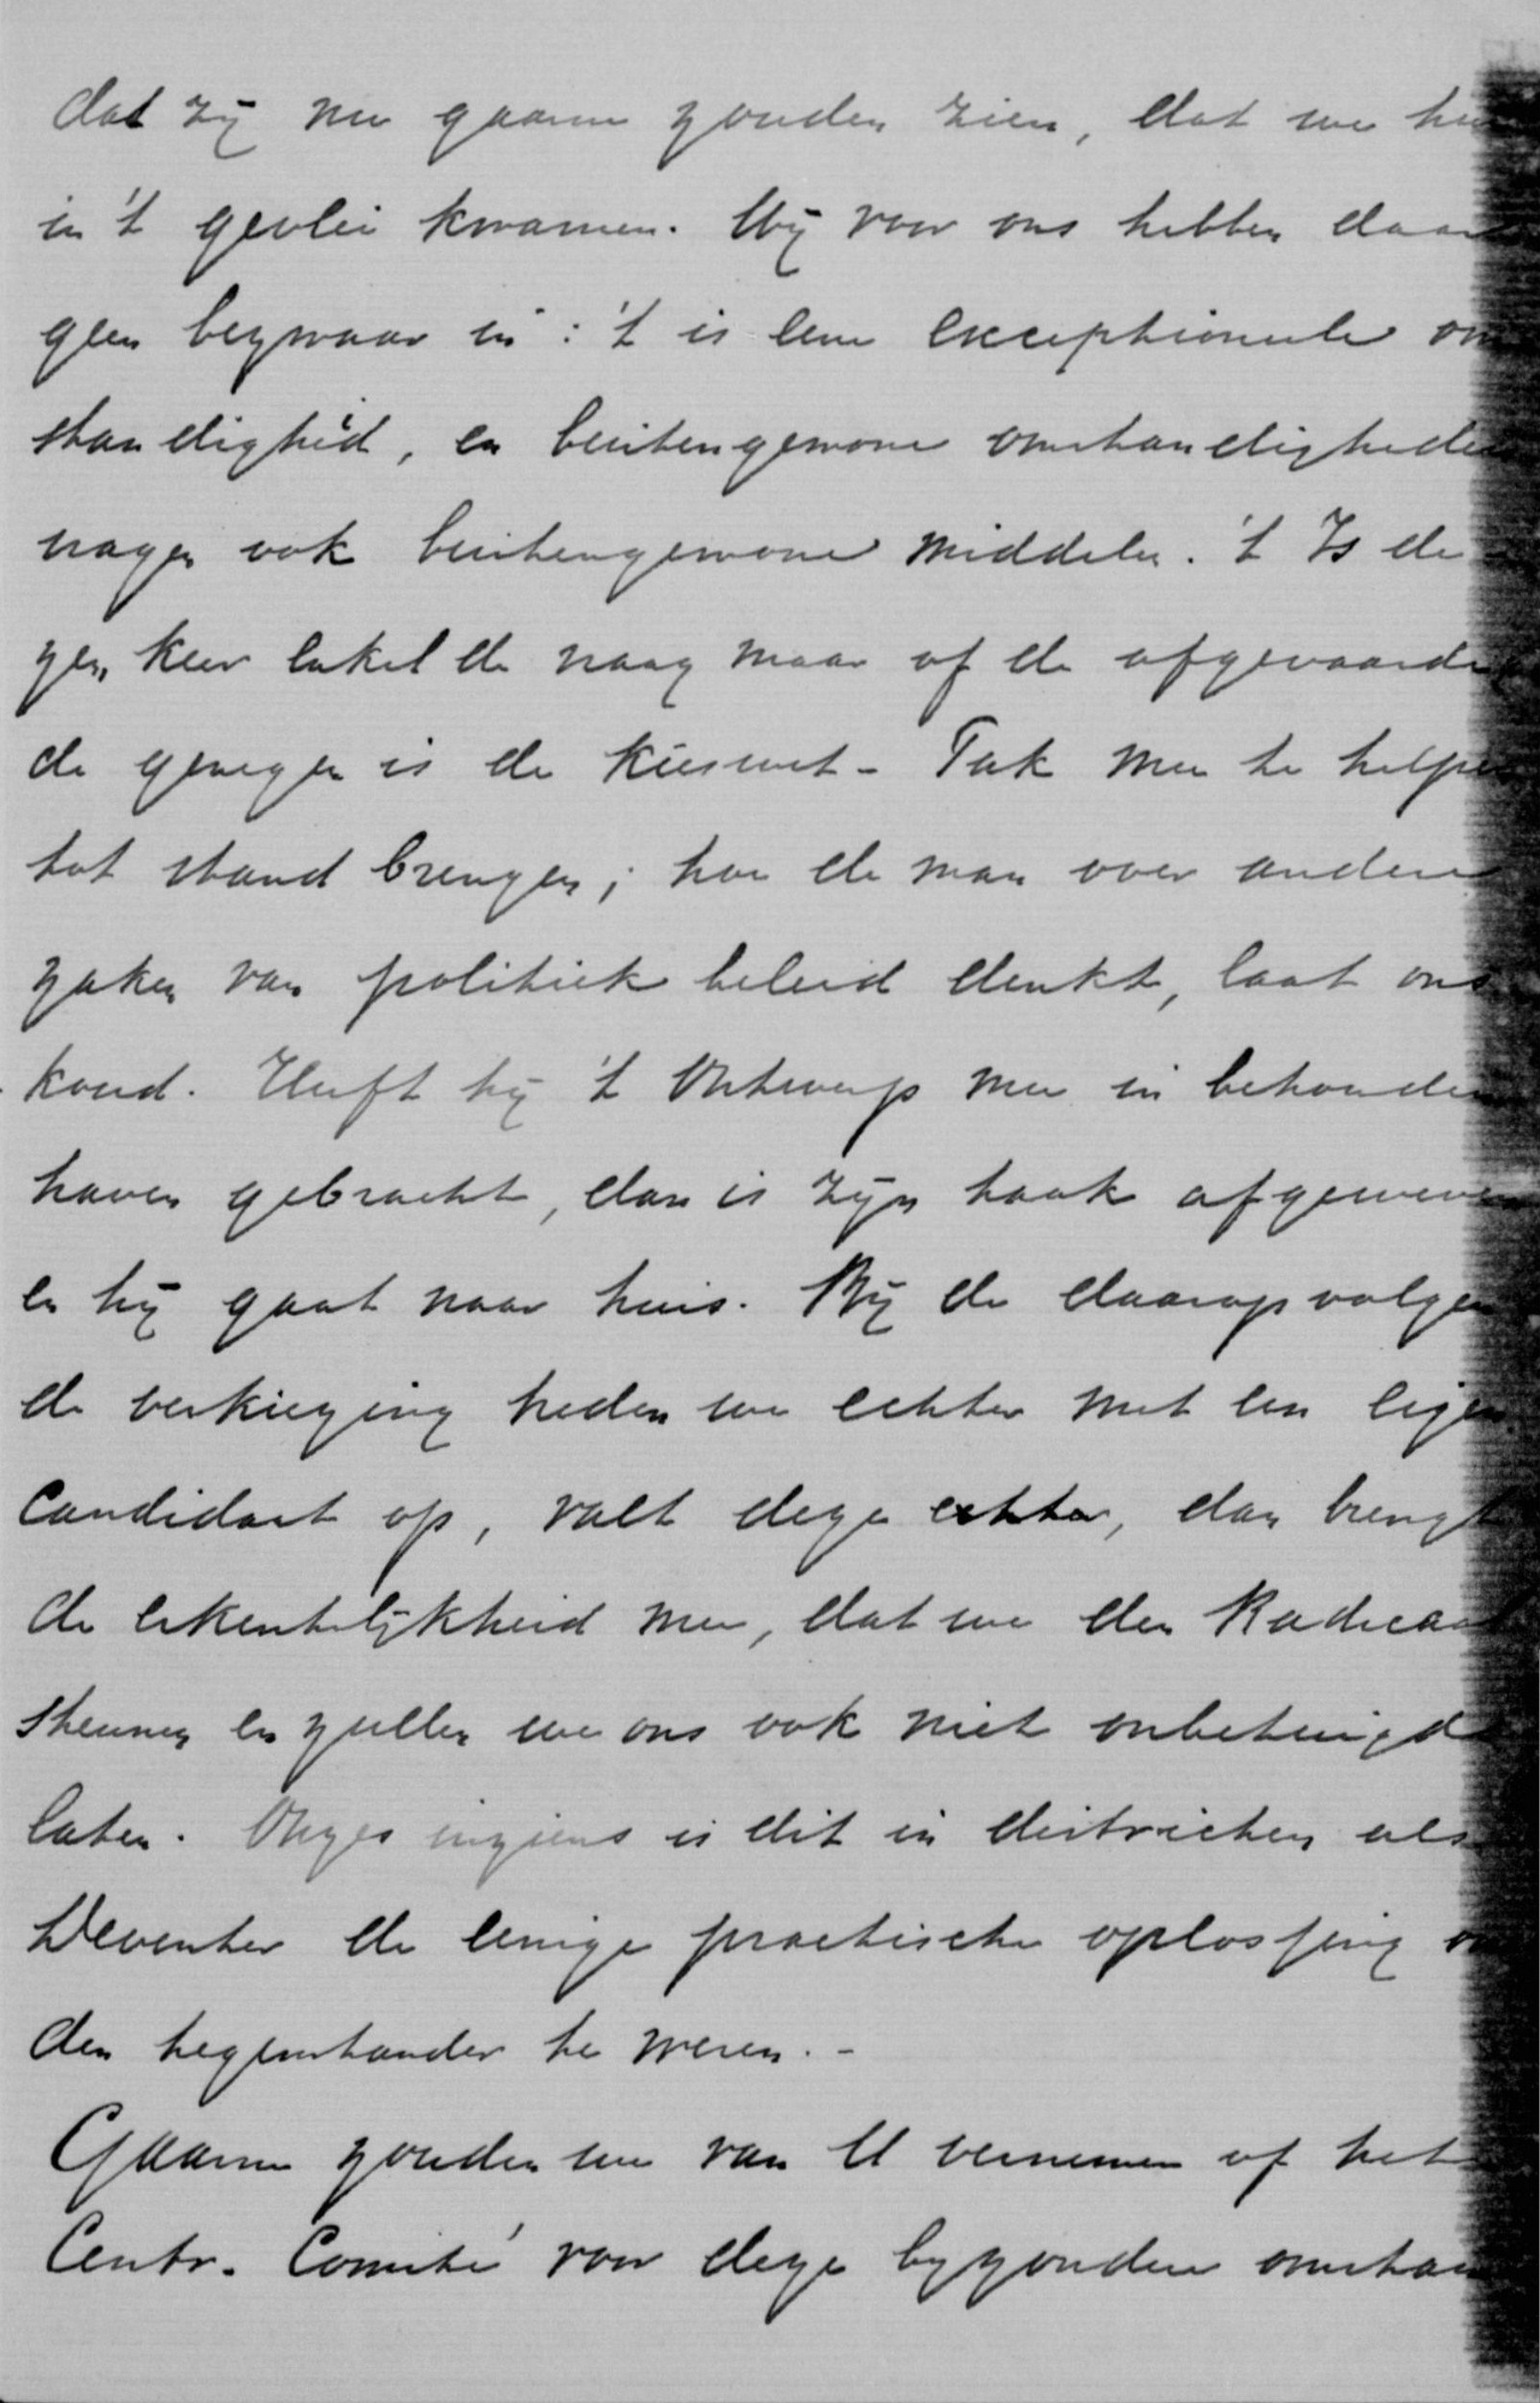 dat zij nu gaarne zouden zien, dat we hun
in 't gevlei kwamen. Wij voor ons hebben daar
geen bezwaar in: 't is eene exceptioneele om
standigheid, en buitengewone omstandigheden
vragen ook buitengewone middelen. 't Is de
zen keer enkel de vraag maar of de afgevaardig
de genegen is de kieswet-Tak mee te helpen
tot stand brengen; hoe de man over andere
zaken van politiek beleid denkt, laat ons
koud. Heeft hij 't Ontwerp mee in behouden
haven gebracht, dan is zijn taak afgeweven
en hij gaat naar huis. Bij de daaropvolgen
de verkiezing treden we echter met een eigen
Candidaat op, valt deze echter, dan brengt
de erkentelijkheid mee, dat we den Radicaal
steunen en zullen we ons ook niet onbetuigd
laten. Onzes inziens is dit in districten als
Deventer de eenige practische oplossing om
den tegenstander te weren. -
Gaarne zouden we van U vernemen of het
Centr. Comité voor deze byzondere omstan